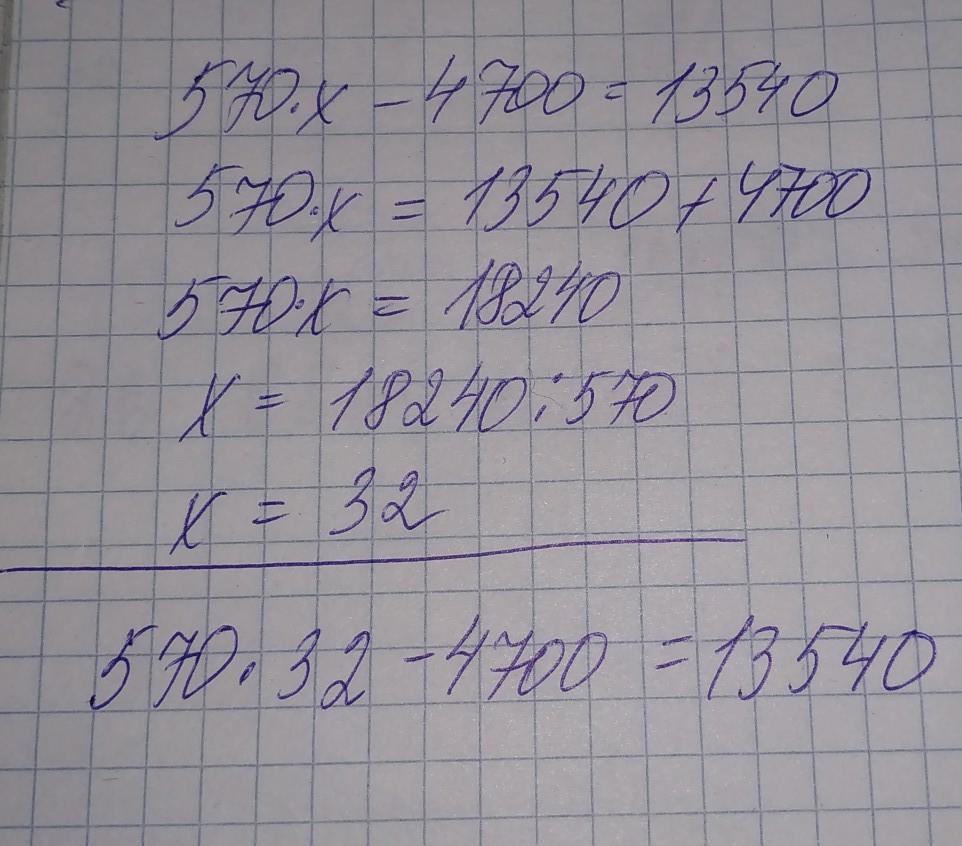 570·x - 4700 = 13540
570·x = 13540 + 4700
570·x = 18240
x = 18240 : 570
x = 32
570·32 - 4700 = 13540